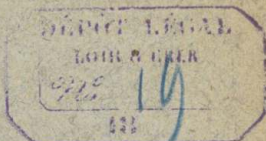 DÉPÔT LÉGAL
LOIR & CHER
No 19